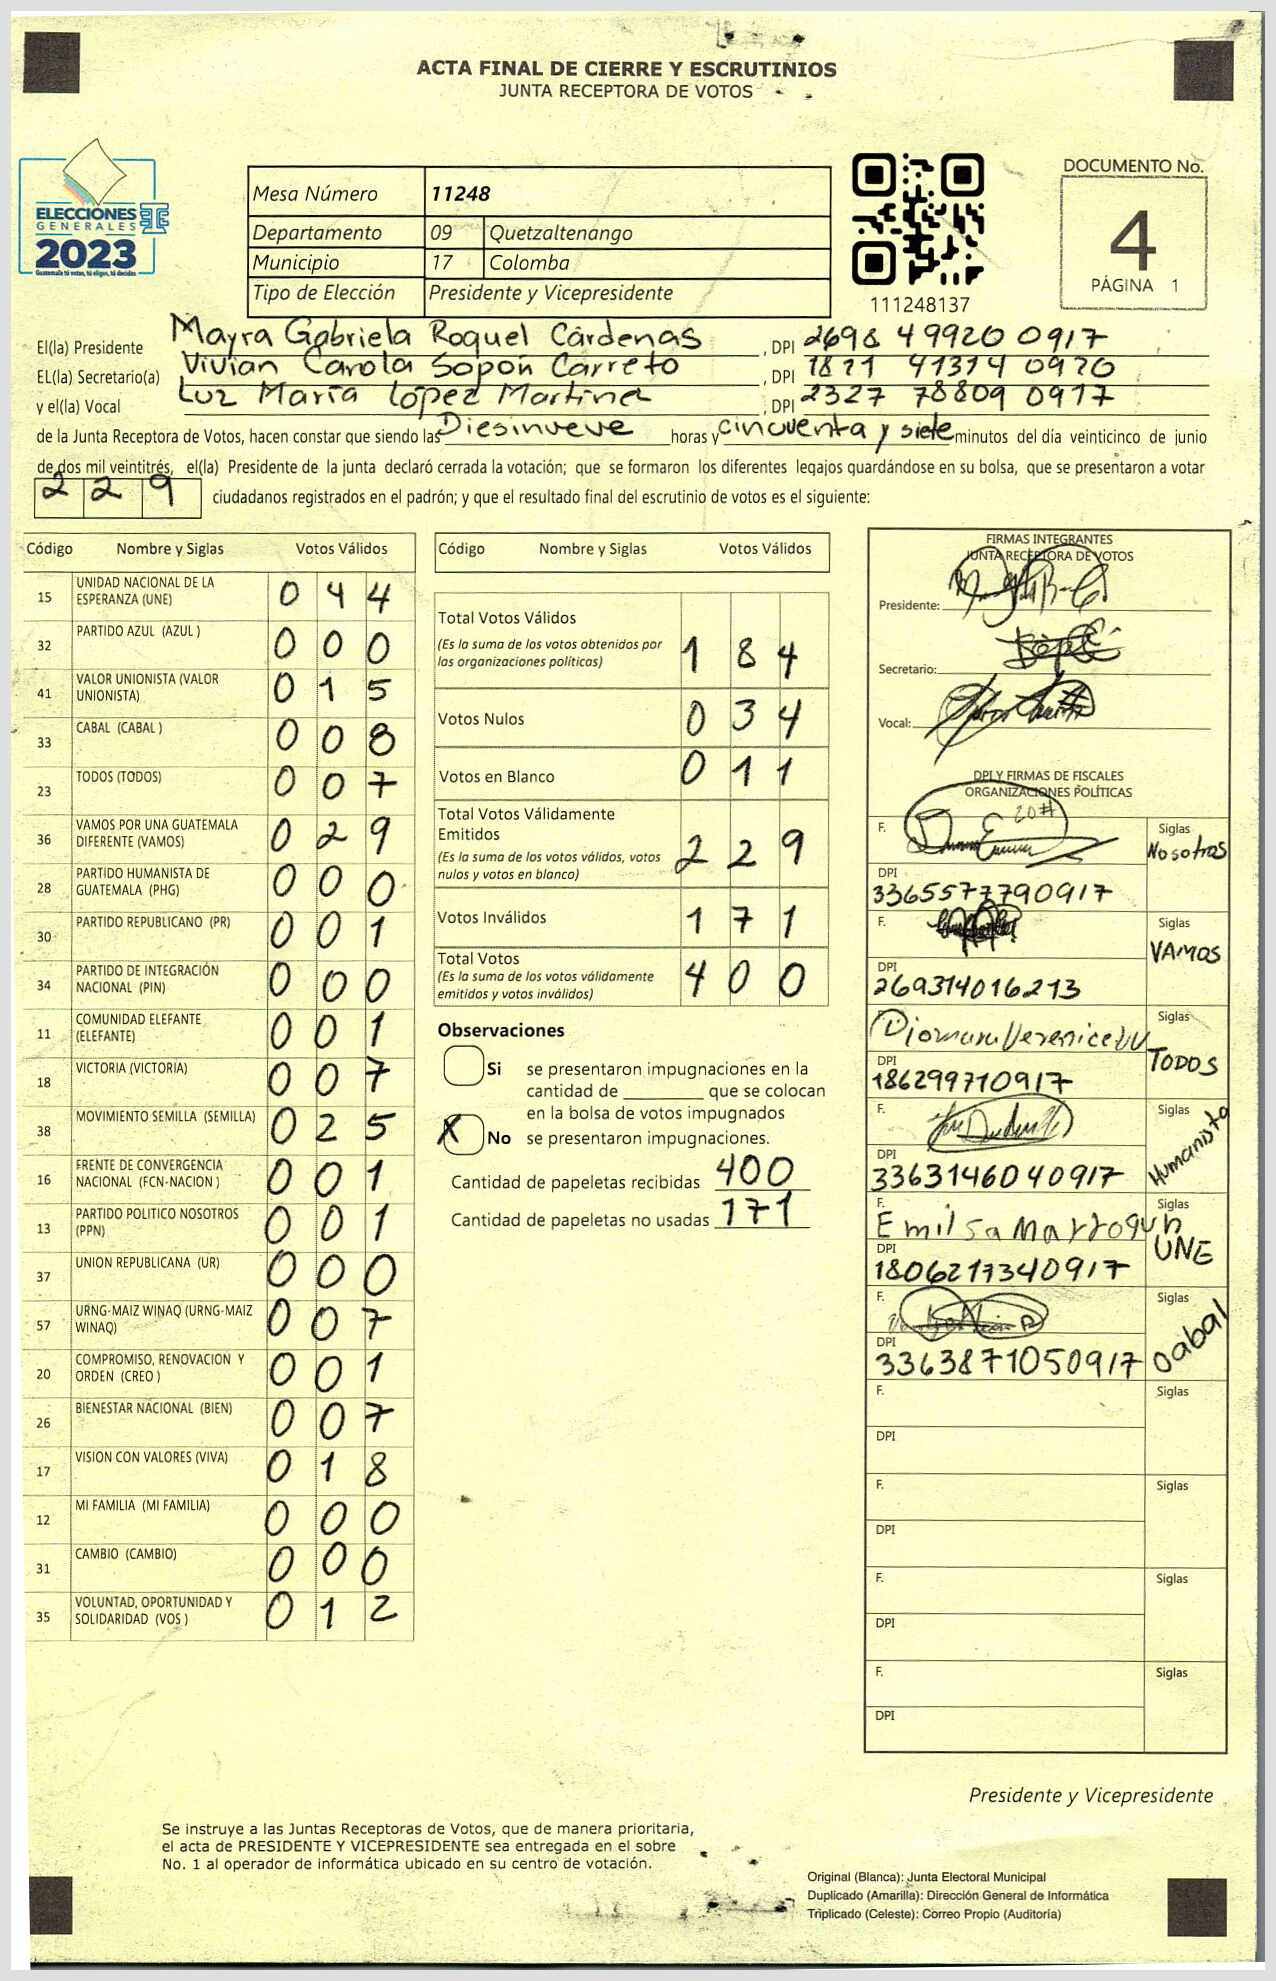 ACTA FINAL DE CIERRE Y ESCRUTINIOS
JUNTA RECEPTORA DE VOTOS
ELECCIONES
GENERALES
2023
Guatemala tú votas, tú eliges, tú decides
Mesa Número 11248
Departamento 09 Quetzaltenango
Municipio 17 Colomba
Tipo de Elección Presidente y Vicepresidente
111248137
DOCUMENTO No.
4
PÁGINA 1
El(la) Presidente Mayra Gabriela Roquel Cárdenas, DPI 2698 49920 0917
EL(la) Secretario(a) Vivian Carola Sopón Carreto, DPI 1821 41314 0920
y el(la) Vocal Luz María López Martinez, DPI 2327 78809 0917
de la Junta Receptora de Votos, hacen constar que siendo las Diesinueve horas y cincuenta y siete minutos del día veinticinco de junio
de dos mil veintitrés, el(la) Presidente de la junta declaró cerrada la votación; que se formaron los diferentes legajos guardándose en su bolsa, que se presentaron a votar
229 ciudadanos registrados en el padrón; y que el resultado final del escrutinio de votos es el siguiente:
Código Nombre y Siglas Votos Válidos
15 UNIDAD NACIONAL DE LA ESPERANZA (UNE) 0 4 4
32 PARTIDO AZUL (AZUL ) 0 0 0
41 VALOR UNIONISTA (VALOR UNIONISTA) 0 1 5
33 CABAL (CABAL ) 0 0 8
23 TODOS (TODOS) 0 0 7
36 VAMOS POR UNA GUATEMALA DIFERENTE (VAMOS) 0 2 9
28 PARTIDO HUMANISTA DE GUATEMALA (PHG) 0 0 0
30 PARTIDO REPUBLICANO (PR) 0 0 1
34 PARTIDO DE INTEGRACIÓN NACIONAL (PIN) 0 0 0
11 COMUNIDAD ELEFANTE (ELEFANTE) 0 0 1
18 VICTORIA (VICTORIA) 0 0 7
38 MOVIMIENTO SEMILLA (SEMILLA) 0 2 5
16 FRENTE DE CONVERGENCIA NACIONAL (FCN-NACION ) 0 0 1
13 PARTIDO POLITICO NOSOTROS (PPN) 0 0 1
37 UNION REPUBLICANA (UR) 0 0 0
57 URNG-MAIZ WINAQ (URNG-MAIZ WINAQ) 0 0 7
20 COMPROMISO, RENOVACION Y ORDEN (CREO ) 0 0 1
26 BIENESTAR NACIONAL (BIEN) 0 0 7
17 VISION CON VALORES (VIVA) 0 1 8
12 MI FAMILIA (MI FAMILIA) 0 0 0
31 CAMBIO (CAMBIO) 0 0 0
35 VOLUNTAD, OPORTUNIDAD Y SOLIDARIDAD (VOS ) 0 1 2
Código Nombre y Siglas Votos Válidos
Total Votos Válidos
(Es la suma de los votos obtenidos por las organizaciones políticas) 1 8 4
Votos Nulos 0 3 4
Votos en Blanco 0 1 1
Total Votos Válidamente Emitidos
(Es la suma de los votos válidos, votos nulos y votos en blanco) 2 2 9
Votos Inválidos 1 7 1
Total Votos
(Es la suma de los votos válidamente emitidos y votos inválidos) 4 0 0
Observaciones
Si se presentaron impugnaciones en la
cantidad de ________ que se colocan
en la bolsa de votos impugnados
X No se presentaron impugnaciones.
Cantidad de papeletas recibidas 400
Cantidad de papeletas no usadas 171
FIRMAS INTEGRANTES
JUNTA RECEPTORA DE VOTOS
Presidente:
Secretario:
Vocal:
DPI Y FIRMAS DE FISCALES
ORGANIZACIONES POLÍTICAS
F. Siglas Nosotros
DPI 3365577790917
F. Siglas VAMOS
DPI 269314016213
Siglas TODOS
DPI 186299710917
F. Siglas Humanista
DPI 3363146040917
F. Emilsa Marroquin Siglas UNE
DPI 1806217340917
F. Siglas Cabal
DPI 3363871050917
F. Siglas
DPI
F. Siglas
DPI
F. Siglas
DPI
F. Siglas
DPI
Presidente y Vicepresidente
Se instruye a las Juntas Receptoras de Votos, que de manera prioritaria,
el acta de PRESIDENTE Y VICEPRESIDENTE sea entregada en el sobre
No. 1 al operador de informática ubicado en su centro de votación.
Original (Blanca): Junta Electoral Municipal
Duplicado (Amarilla): Dirección General de Informática
Triplicado (Celeste): Correo Propio (Auditoría)